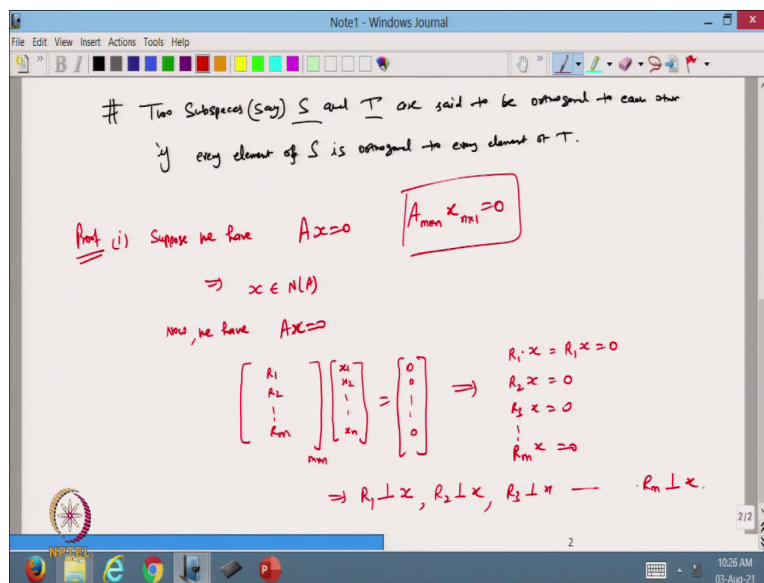 Note1 - Windows Journal
File Edit View Insert Actions Tools Help
# Two Subspaces (say) S and T are said to be orthogonal to each other
if every element of S is orthogonal to every element of T.
Proof (i) Suppose we have Ax=0 A_{m×n} x_{n×1} = 0
⇒ x ∈ N(A)
Now, we have Ax=0
[R1 R2 ⋮ Rm]_{m×n} [x1 x2 ⋮ xn] = [0 0 ⋮ 0] ⇒
R1·x = R1x = 0
R2 x = 0
R3 x = 0
⋮
Rm x = 0
⇒ R1 ⊥ x, R2 ⊥ x, R3 ⊥ x — Rm ⊥ x.
2/2
2
NPTEL
10:26 AM
03-Aug-21